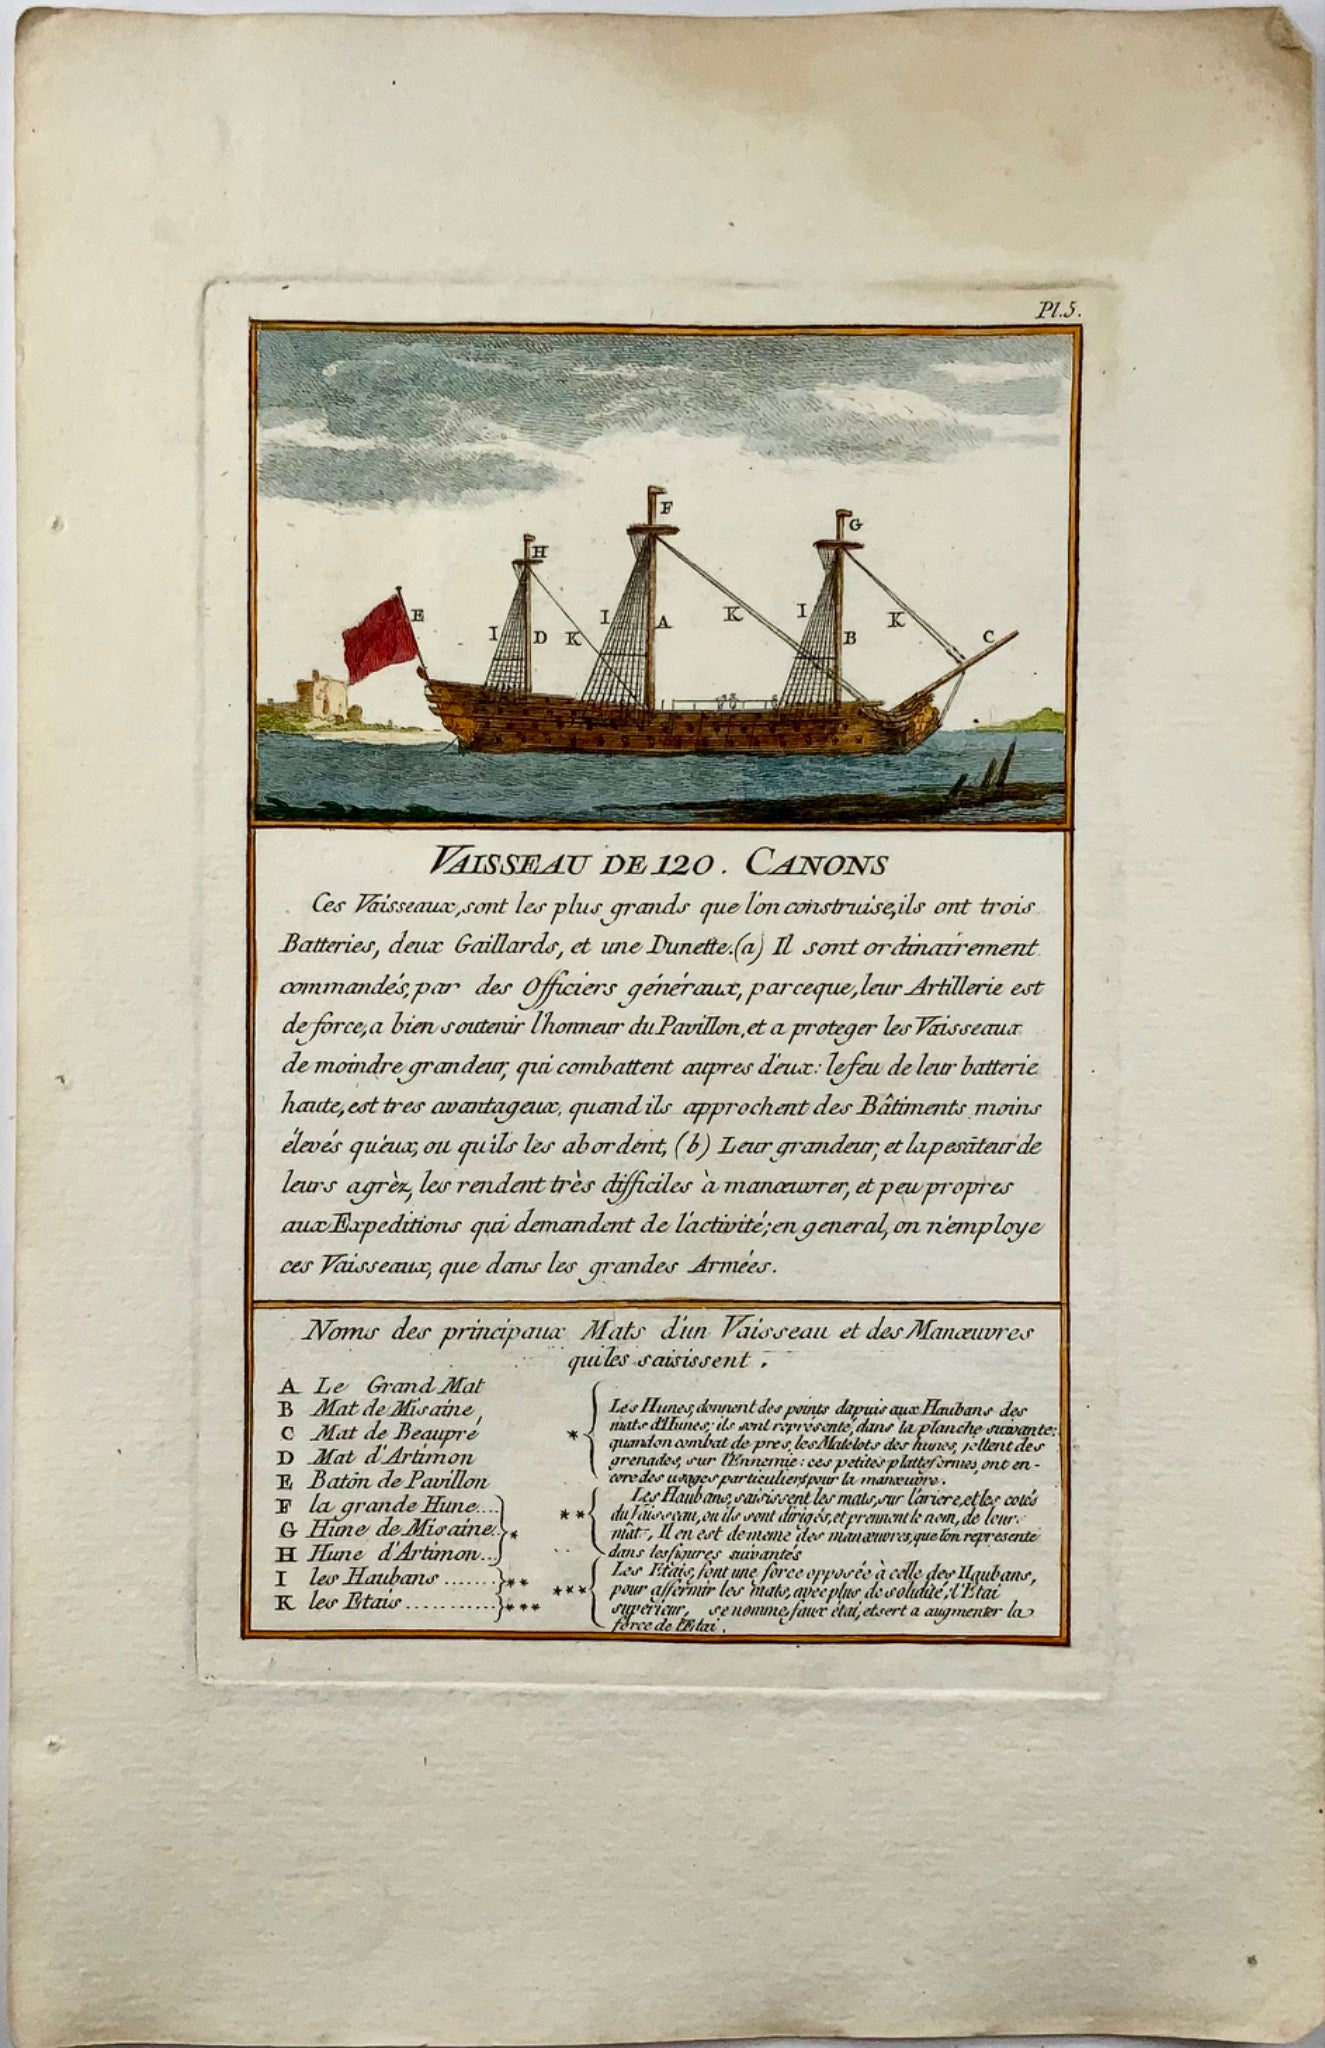 Pl.5.
F
G
H
E
I
D
K
I
A
K
I
B
K
C
VAISSEAU DE 120. CANONS
Ces Vaisseaux, sont les plus grands que l'on construise, ils ont trois
Batteries, deux Gaillards, et une Dunette. (a) Il sont ordinairement
commandés, par des Officiers généraux, parceque, leur Artillerie est
de force, a bien soutenir l'honneur du Pavillon, et a proteger les Vaisseaux
de moindre grandeur, qui combattent aupres d'eux: le feu de leur batterie
haute, est tres avantageux, quand ils approchent des Bâtiments moins
élevés qu'eux, ou qu'ils les abordent, (b) Leur grandeur, et la pesateur de
leurs agrèz, les rendent très difficiles à manœuvrer, et peu propres
aux Expeditions qui demandent de l'activité; en general, on n'employe
ces Vaisseaux, que dans les grandes Armées.
Noms des principaux Mats d'un Vaisseau et des Manœuvres
qui les saisissent.
A Le Grand Mat
B Mat de Misaine,
C Mat de Beaupré
D Mat d'Artimon
E Batôn de Pavillon
F la grande Hune....
G Hune de Misaine. *
H Hune d'Artimon...
I les Haubans ....... **
K les Etais ........... ***
* Les Hunes, donnent des points d'apuis aux Haubans des
mats d'Hunes; ils sont représenté, dans la planche suivante:
quand on combat de pres, les Matelots des hunes, jettent des
grenades, sur l'Ennemie: ces petites platteformes, ont en-
core des usages particuliers pour la manœuvre.
** Les Haubans, saisissent les mats, sur l'ariere, et les cotés
du Vaisseau, ou ils sont dirigés, et prennent le nom, de leur
mât, Il en est de meme des manœuvres, que l'on represente
dans les figures suivantés
*** Les Etais, font une force opposée à celle des Haubans,
pour affermir les mats, avec plus de solidité, l'Etai
superieur, se nomme, faux étai, et sert a augmenter la
force de l'Etai.